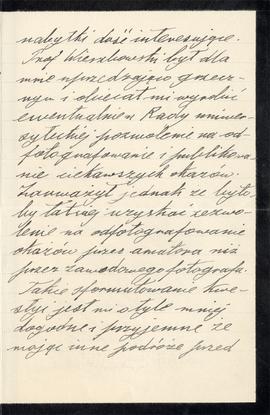 nabytki dość interesujące.
Prof Wierzbowski był dla
mnie uprzedzająco grzecz-
nym i obiecał mi wyrobić
ewentualnie u Rady uniwer-
syteckiej pozwolenie na od-
fotografowanie i publikowa-
nie ciekawszych okazów.
Zauważył jednak że było
by łatwiej uzyskać zezwo-
lenie na odfotografowanie
okazów przez amatora niż
przez zawodowego fotografa.
Takie sformułowanie kwe-
styi jest mi o tyle mniej
dogodne i przyjemne że
mając inne podróże przed